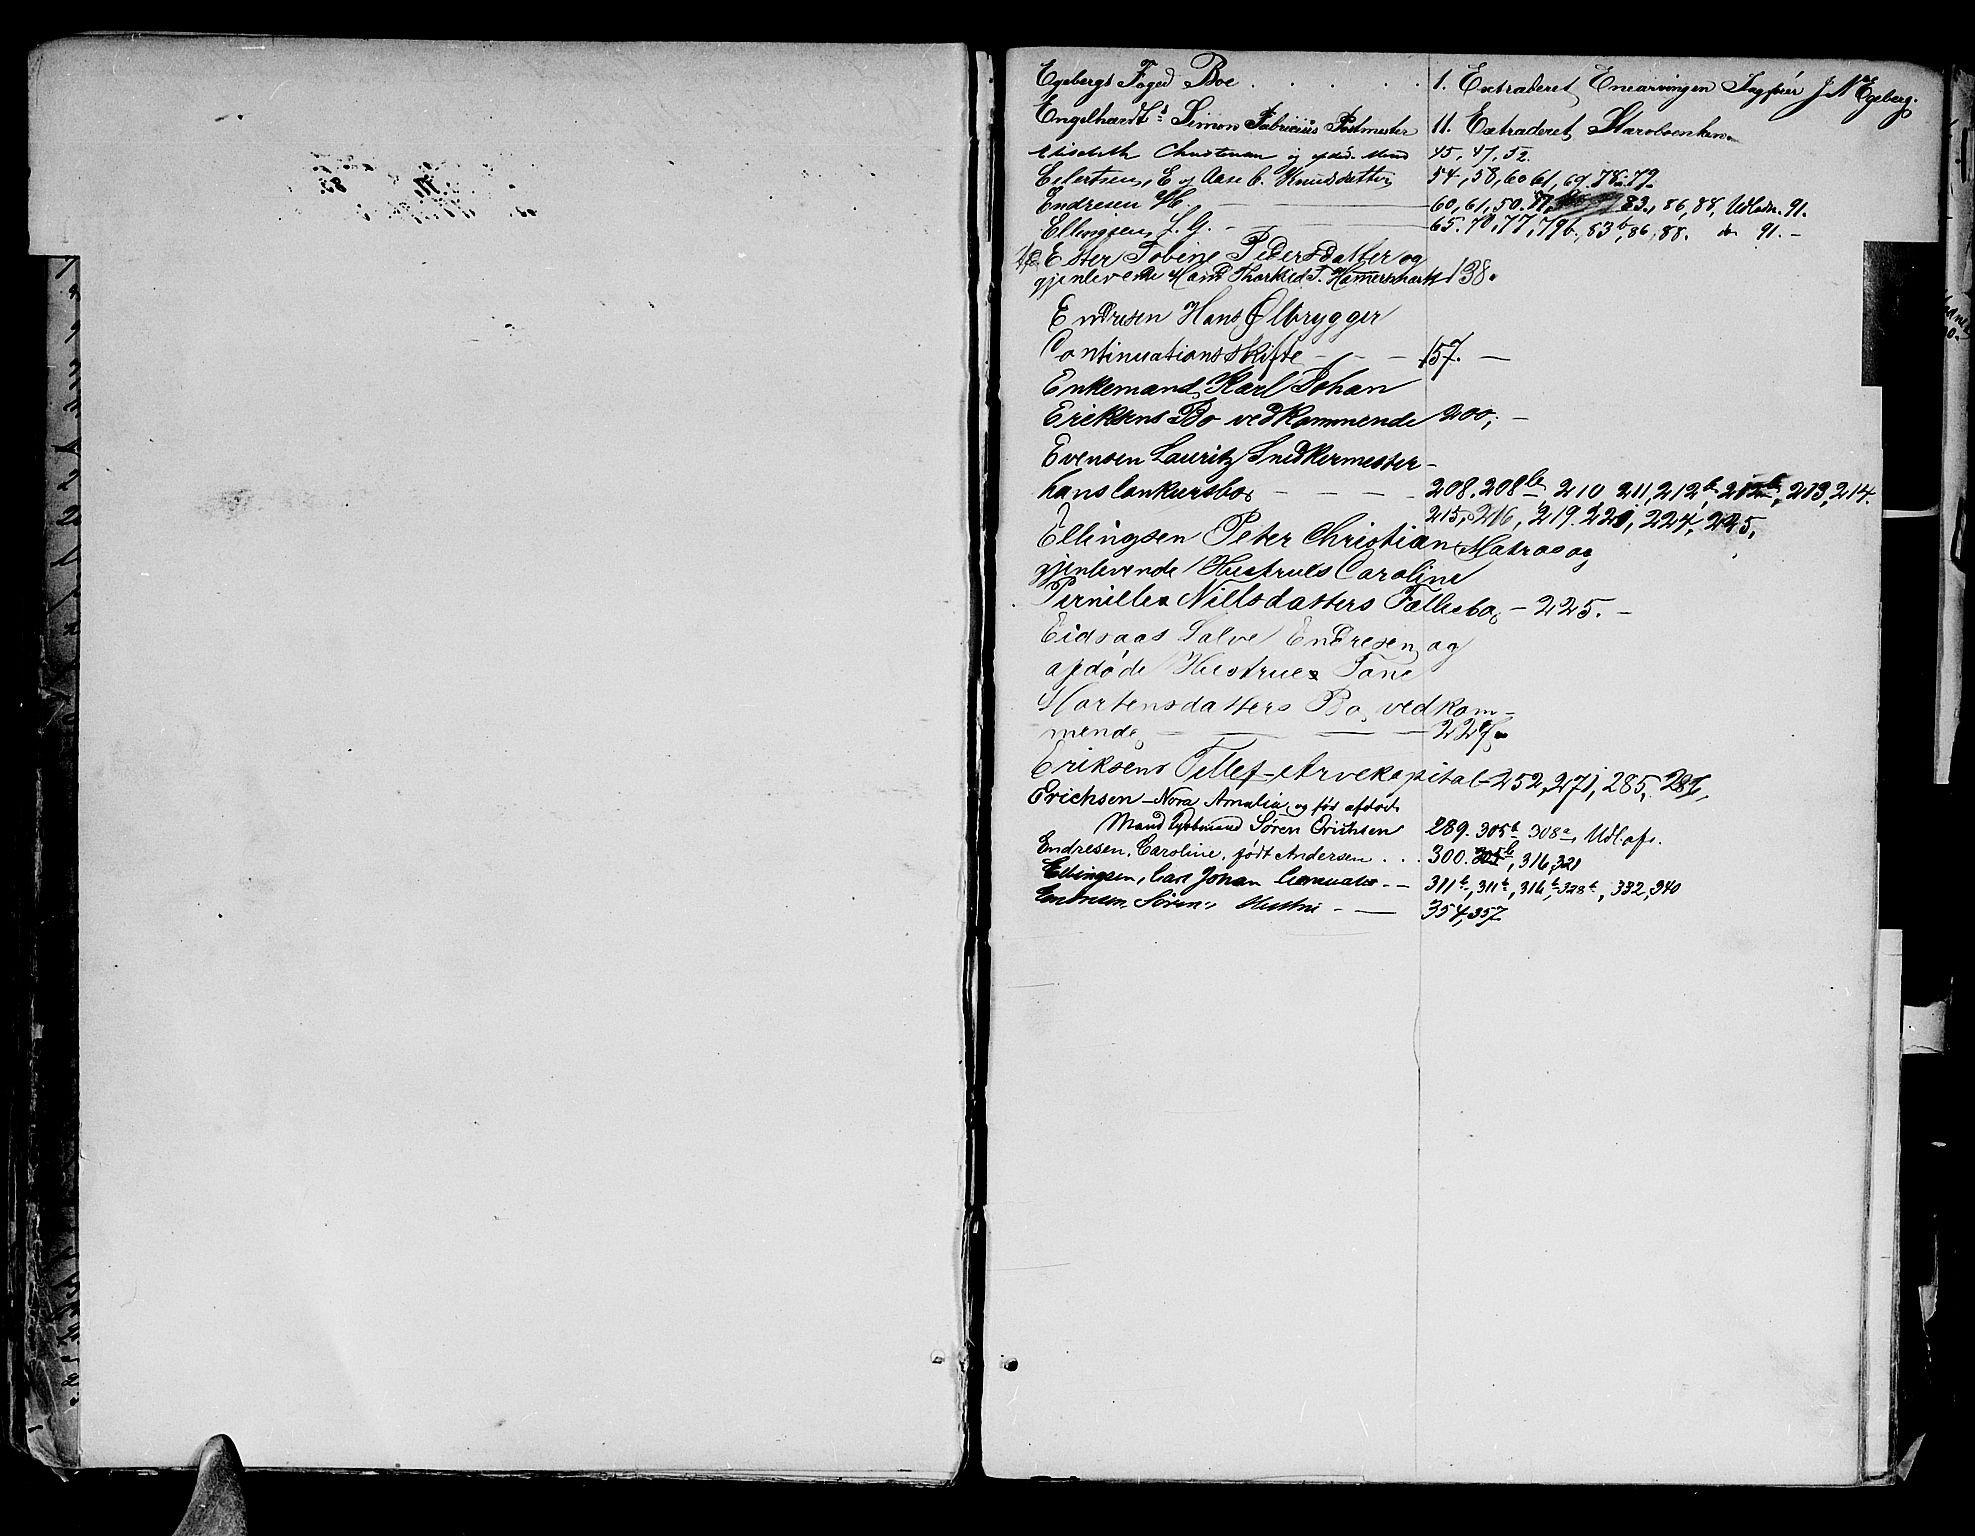 Egebergs Foged Boe . . . . . 1. Extraderet Enearvingen J N Egeberg.
Engelhardts Simon Fabricius Postmester 11. Extraderet
Elisabeth Christensen og afdød. Mand 45, 47, 52.
Eilertsen, E og Aase C. Knudsdatter 54, 58, 60 61, 69. 78. 79
Endresen H. — 60, 61, 50. 77, 83, 86, 88, Udladn. 91.
Ellingsen, J. G. — 65. 70, 77, 79b., 83b, 86, 88. do 91. —
Ester Tobine Pedersdatter og
gjenlevende Mand Thorkild T. Hamersmark 138.
Endresen Hans Ølbrygger
Continuationsskifte — — — 157. —
Enkemand Karl Johan
Eriksens Bo vedkommende 200, —
Evensen Lauritz Snedkermester —
hans Conkursbo — — — 208. 208b, 210 211, 212b, 212b, 213, 214.
215, 216, 219. 221, 224, 225.
Ellingsen Peter Christian Matros og
gjenlevende Hustrues Caroline
Pernille Nillsdatters Fællesbo — 225. —
Eidsaas Salve Endresen og
afdøde Hustrues Tone
Mortensdatters Bo vedkom-
mende — — — 227.
Eriksens Tellef Arvekapital — 252, 271, 285, 287,
Erichsen — Nora Amalia og før afdøde
Mand Søren Erichsen 289. 305b 308a, Udl. afs.
Endresen, Caroline, født Andersen . . . 300. 305b, 316, 321
Ellingsen, Carl Johan — 311b, 311b, 316b, 328b, 332, 340
Endresen Sørens Hustru — — 354, 357